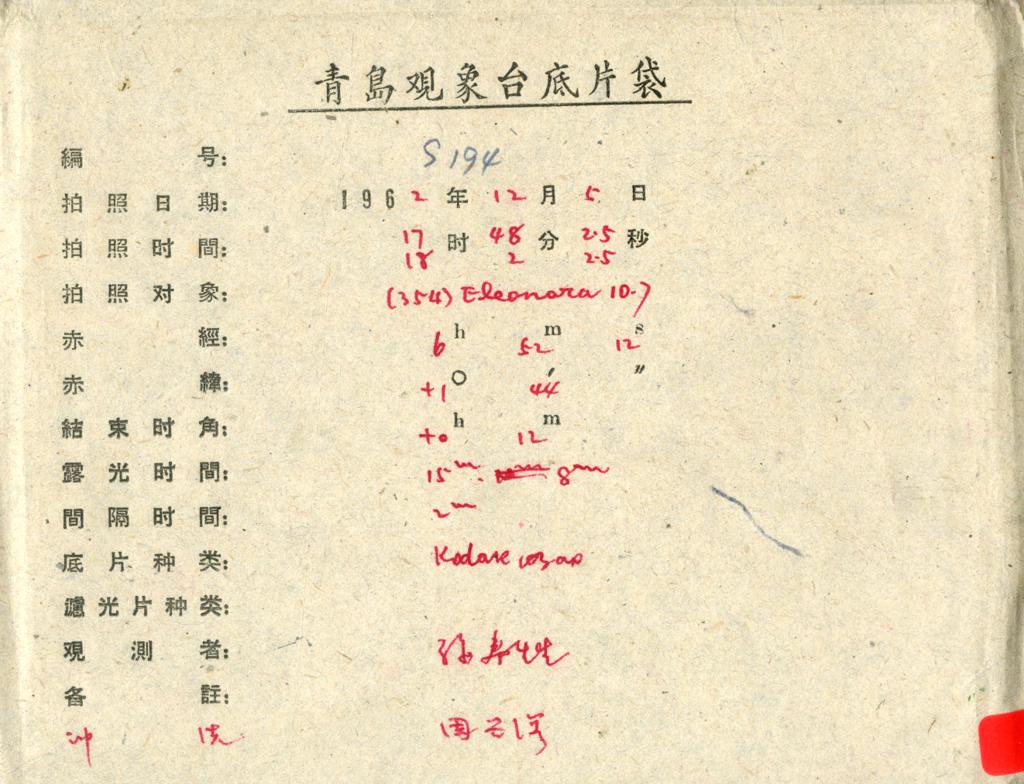 青島观象台底片袋
編号: S 194
拍照日期: 1962年12月5日
拍照时間: 17时48分25秒
18 2 25
拍照对象: (354) Eleonora 10.7
赤經: 6h 52m 12s
赤緯: +1° 44′ ″
結束时角: +0h 12m
露光时間: 15m. 8m
間隔时間: 2m
底片种类: Kodak 103aO
濾光片种类:
观測者: 孙寿
各註:
冲洗 周